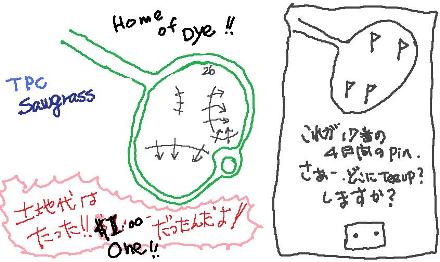 Home
of
Dye!!
TPC
Sawgrass
26
土地代は
たった!! $1.00 だったんだよ!
One!!
P P
P P
これが17番の
4日間のPin.
さあー どこにTeeup?
しますか?